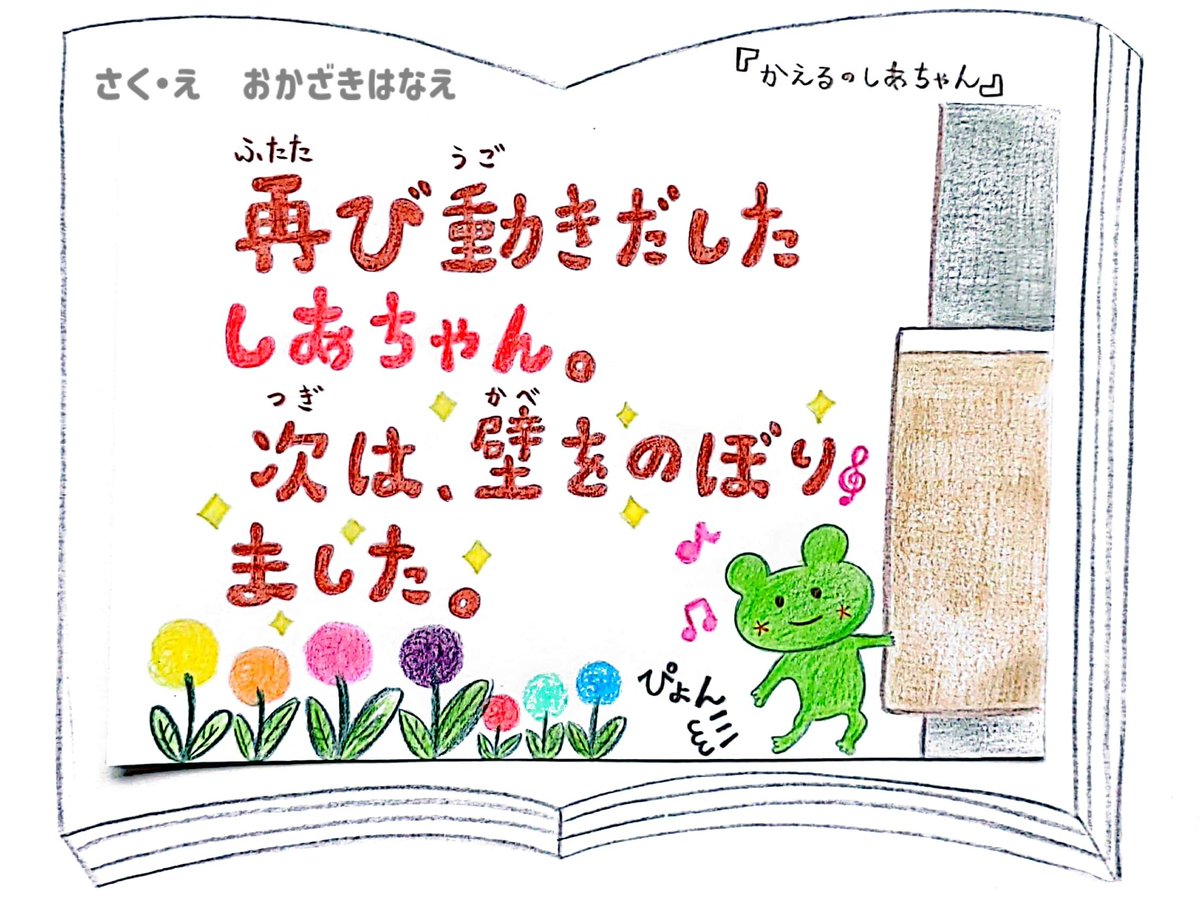 さく・え　おかざきはなえ
『かえるのしあちゃん』
ふたた　うご
再び動きだした
しあちゃん。
つぎ　かべ
次は、壁をのぼり
ました。
ぴょん